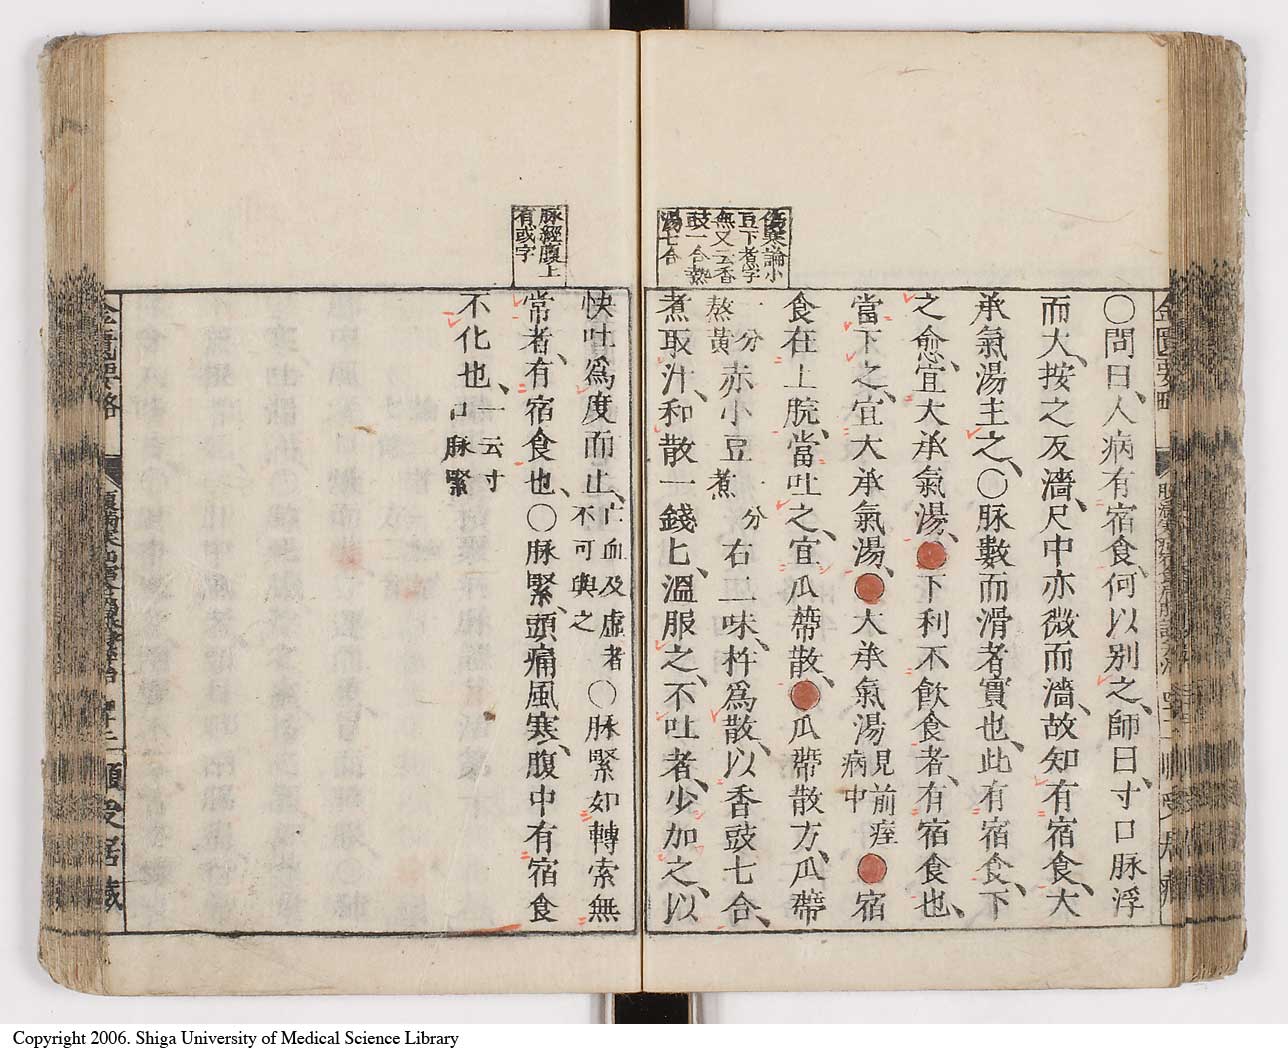 傷寒論小
豆下煮字
無又云香
豉一合熱
湯七合
〇問曰、人病有宿食、何以別之、師曰、寸口脉浮
而大、按之反濇、尺中亦微而濇、故知有宿食、大
承氣湯主之、〇脉數而滑者實也、此有宿食、下
之愈、宜大承氣湯、●下利不飲食者、有宿食也、
當下之、宜大承氣湯、●大承氣湯見前痓病中●宿
食在上脘、當吐之、宜瓜蔕散、●瓜蔕散方、瓜蔕
一分熬黃赤小豆一分煮右二味、杵爲散、以香豉七合、
煮取汁、和散一錢匕、溫服之、不吐者、少加之、以
脉經腹上
有或字
快吐爲度而止、亡血及虛者不可與之〇脉緊如轉索無
常者、有宿食也、〇脉緊、頭痛風寒、腹中有宿食
不化也、一云寸口脉緊
金匱要略
順受居藏
Copyright 2006. Shiga University of Medical Science Library